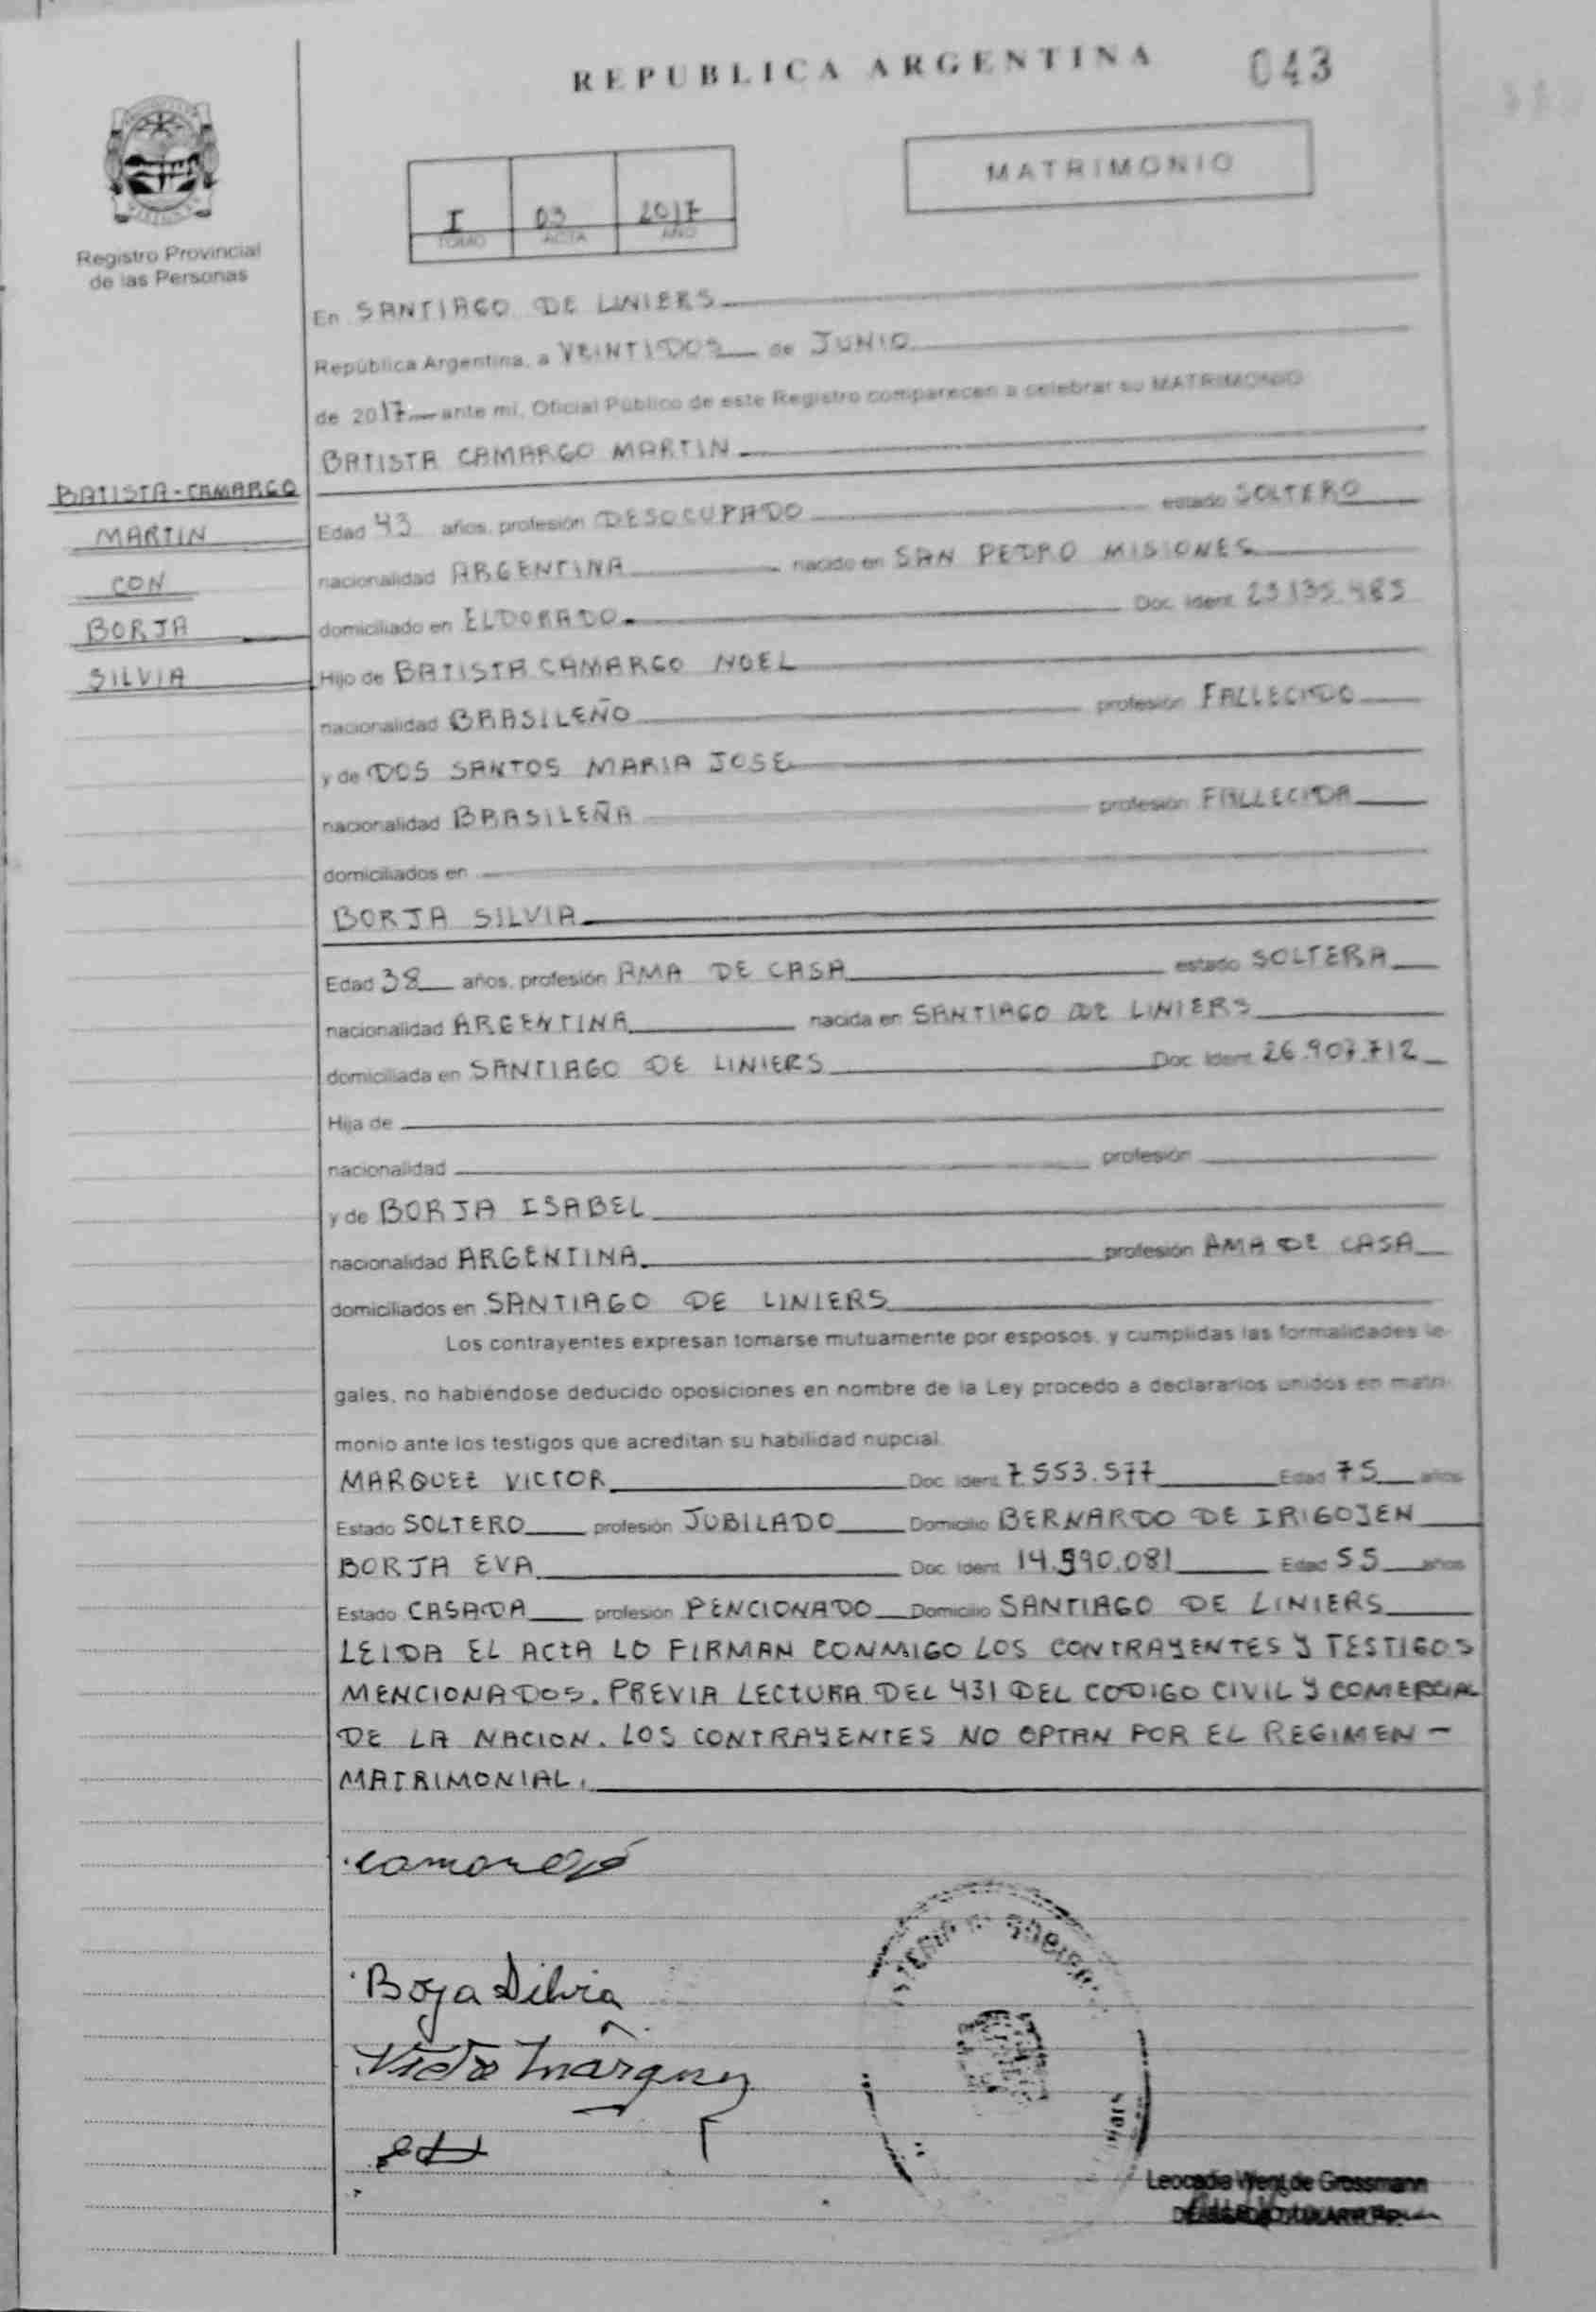 REPUBLICA ARGENTINA 043
MATRIMONIO
I 03 2017
TOMO ACTA AÑO
Registro Provincial
de las Personas
En SANTIAGO DE LINIERS
República Argentina, a VEINTIDOS de JUNIO
de 2017 ante mí, Oficial Público de este Registro comparecen a celebrar su MATRIMONIO
BATISTA CAMARGO MARTIN
BATISTA-CAMARGO
MARTIN
CON
BORJA
SILVIA
Edad 43 años, profesión DESOCUPADO estado SOLTERO
nacionalidad ARGENTINA nacido en SAN PEDRO MISIONES
domiciliado en ELDORADO Doc. Ident. 23.135.985
Hijo de BATISTA CAMARGO NOEL
nacionalidad BRASILEÑO profesión FALLECIDO
y de DOS SANTOS MARIA JOSE
nacionalidad BRASILEÑA profesión FALLECIDA
domiciliados en
BORJA SILVIA
Edad 38 años, profesión AMA DE CASA estado SOLTERA
nacionalidad ARGENTINA nacida en SANTIAGO DE LINIERS
domiciliada en SANTIAGO DE LINIERS Doc. Ident. 26.907.712
Hija de
nacionalidad profesión
y de BORJA ISABEL
nacionalidad ARGENTINA profesión AMA DE CASA
domiciliados en SANTIAGO DE LINIERS
Los contrayentes expresan tomarse mutuamente por esposos, y cumplidas las formalidades le-
gales, no habiéndose deducido oposiciones en nombre de la Ley procedo a declararlos unidos en matri-
monio ante los testigos que acreditan su habilidad nupcial.
MARQUEZ VICTOR Doc. Ident. 7.553.577 Edad 75 años
Estado SOLTERO profesión JUBILADO Domicilio BERNARDO DE IRIGOJEN
BORJA EVA Doc. Ident. 14.990.081 Edad 55 años
Estado CASADA profesión PENCIONADO Domicilio SANTIAGO DE LINIERS
LEIDA EL ACTA LO FIRMAN CONMIGO LOS CONTRAYENTES Y TESTIGOS
MENCIONADOS. PREVIA LECTURA DEL 431 DEL CODIGO CIVIL Y COMERCIAL
DE LA NACION. LOS CONTRAYENTES NO OPTAN POR EL REGIMEN -
MATRIMONIAL.
Borja Silvia
Victor Márquez
Leocadia Went de Grossmann